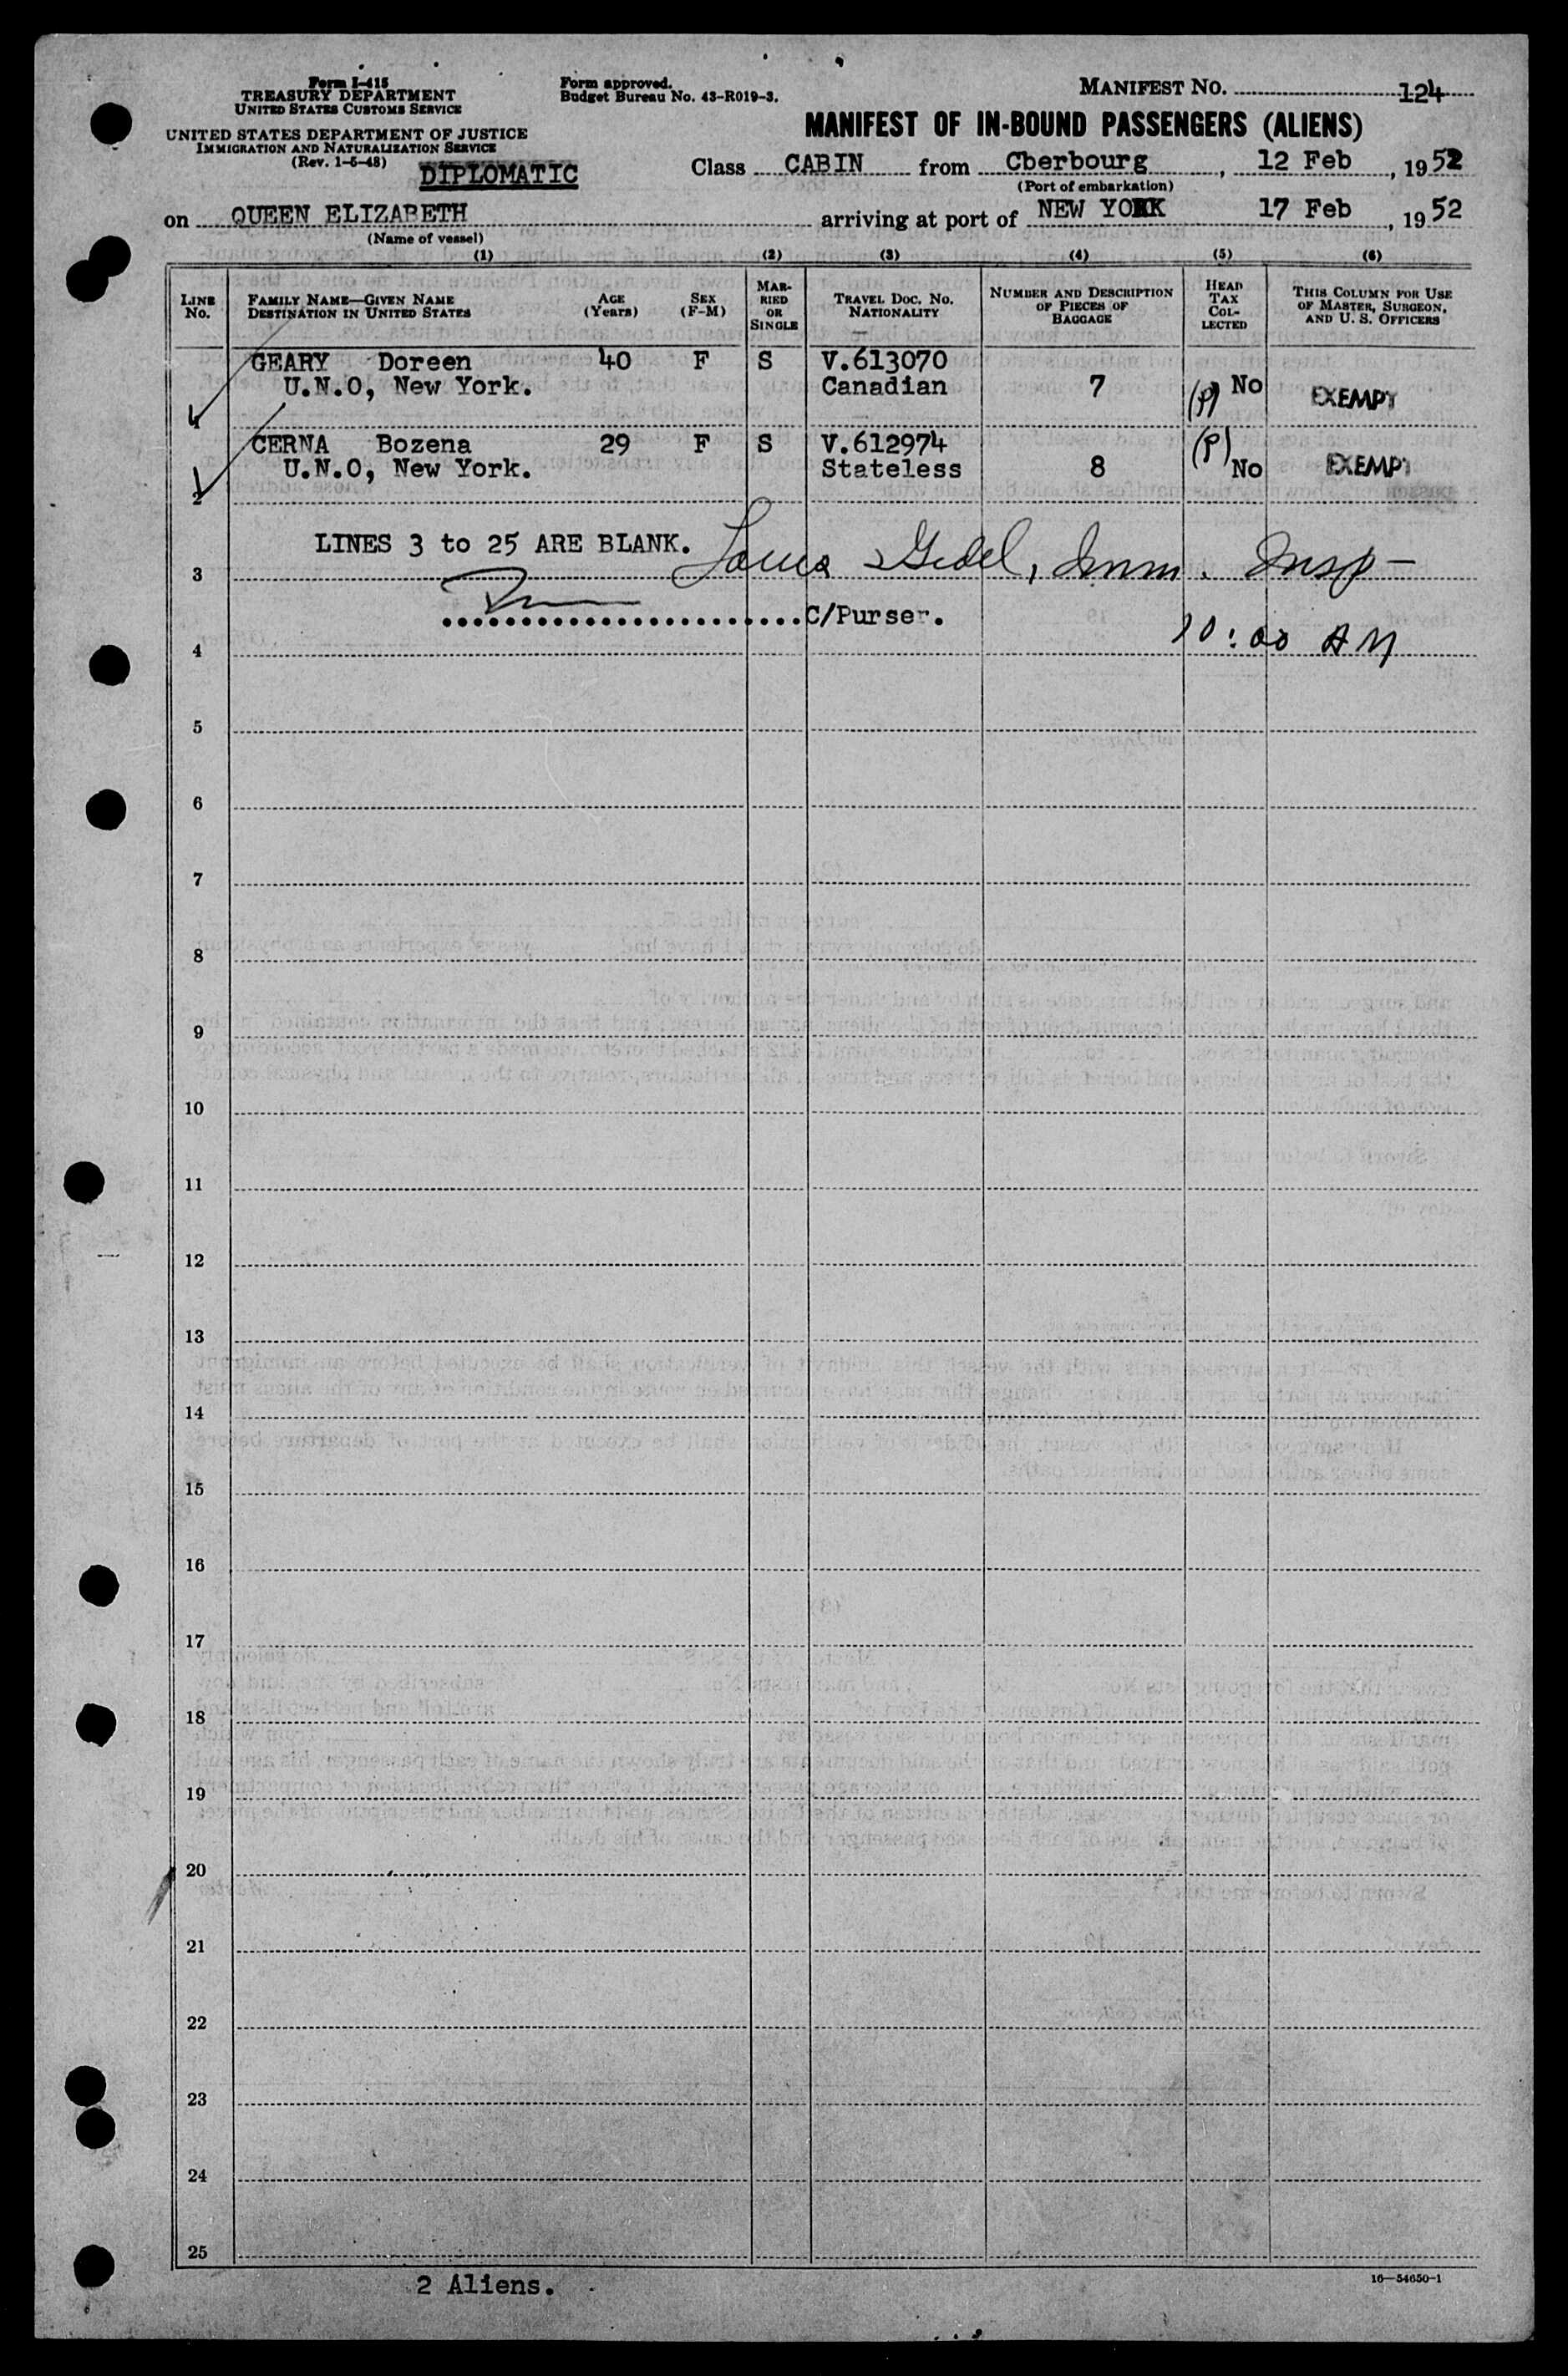 Form I-415
TREASURY DEPARTMENT
UNITED STATES CUSTOMS SERVICE
UNITED STATES DEPARTMENT OF JUSTICE
IMMIGRATION AND NATURALIZATION SERVICE
(Rev. 1-5-48)
DIPLOMATIC
Form approved.
Budget Bureau No. 43-R019-3.
MANIFEST NO. 124
MANIFEST OF IN-BOUND PASSENGERS (ALIENS)
Class CABIN from Cberbourg, 12 Feb, 1952
(Port of embarkation)
on QUEEN ELIZABETH arriving at port of NEW YORK 17 Feb, 1952
(Name of vessel)
(1) (2) (3) (4) (5) (6)
LINE No. FAMILY NAME—GIVEN NAME DESTINATION IN UNITED STATES AGE (Years) SEX (F-M) MARRIED OR SINGLE TRAVEL DOC. NO. NATIONALITY NUMBER AND DESCRIPTION OF PIECES OF BAGGAGE HEAD TAX COLLECTED THIS COLUMN FOR USE OF MASTER, SURGEON, AND U. S. OFFICERS
GEARY Doreen 40 F S V.613070
U.N.O, New York. Canadian 7 (P) No EXEMPT
1
CERNA Bozena 29 F S V.612974 (P)
U.N.O, New York. Stateless 8 No EXEMPT
2
LINES 3 to 25 ARE BLANK. Imm. Insp-
3
C/Purser.
10:00 AM
4
5
6
7
8
9
10
11
12
13
14
15
16
17
18
19
20
21
22
23
24
25
2 Aliens.
16—54650-1